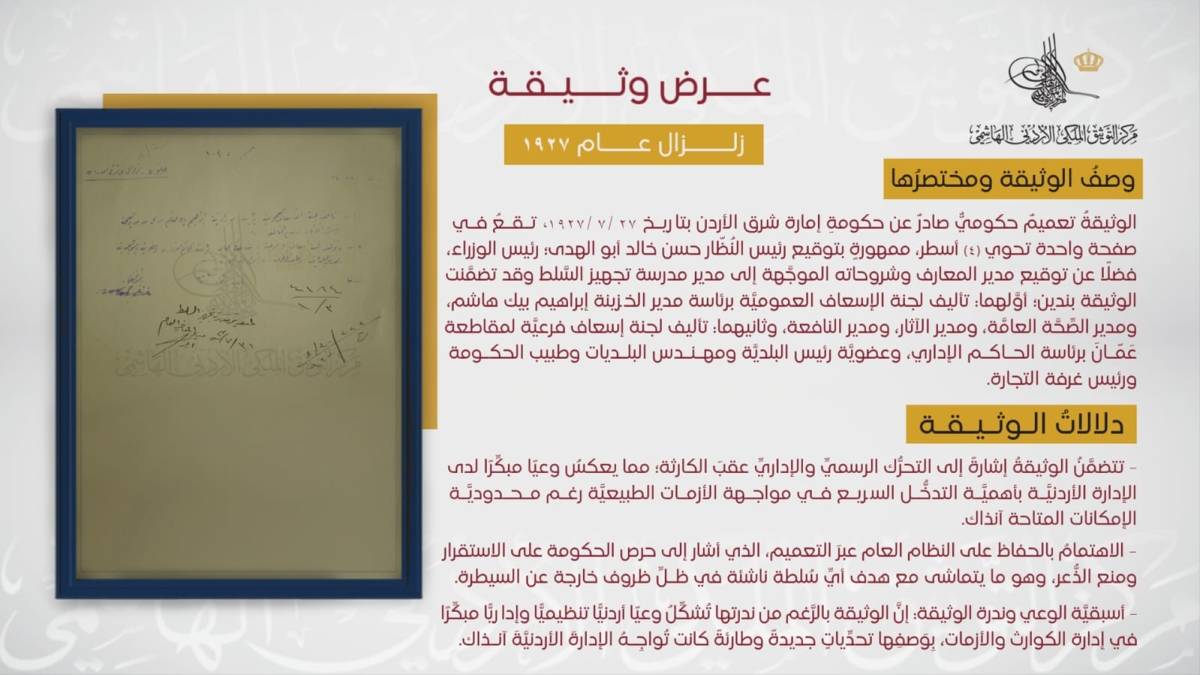 مركز التوثيق الملكي الأردني الهاشمي
عرض وثيقة
زلزال عام ١٩٢٧
وصفُ الوثيقة ومختصرُها
الوثيقةُ تعميمٌ حكوميٌّ صادرٌ عن حكومةِ إمارة شرق الأردن بتاريخ ٢٧ /٧ /١٩٢٧، تقعُ في
صفحة واحدة تحوي (٤) أسطر، ممهورةٍ بتوقيع رئيس النُّظّار حسن خالد أبو الهدى؛ رئيس الوزراء،
فضلًا عن توقيع مدير المعارف وشروحاته الموجَّهة إلى مدير مدرسة تجهيز السَّلط وقد تضمَّنت
الوثيقة بندين: أوَّلهما: تأليف لجنة الإسعاف العموميَّة برئاسة مدير الخزينة إبراهيم بيك هاشم،
ومدير الصِّحَّة العامَّة، ومدير الآثار، ومدير النافعة، وثانيهما: تأليف لجنة إسعاف فرعيَّة لمقاطعة
عَمّانَ برئاسة الحاكم الإداري، وعضويَّة رئيس البلديَّة ومهندس البلديات وطبيب الحكومة
ورئيس غرفة التجارة.
دلالاتُ الوثيقة
- تتضمَّنُ الوثيقةُ إشارةً إلى التحرُّك الرسميِّ والإداريِّ عقبَ الكارثة؛ مما يعكسُ وعيًا مبكِّرًا لدى
الإدارة الأردنيَّة بأهميَّة التدخُّل السريع في مواجهة الأزمات الطبيعيَّة رغم محدوديَّة
الإمكانات المتاحة آنذاك.
- الاهتمامُ بالحفاظ على النظام العام عبرَ التعميم، الذي أشار إلى حرص الحكومة على الاستقرار
ومنع الذُّعر، وهو ما يتماشى مع هدف أيِّ سُلطة ناشئة في ظلِّ ظروف خارجة عن السيطرة.
- أسبقيَّة الوعي وندرة الوثيقة: إنَّ الوثيقة بالرَّغم من ندرتها تُشكِّلُ وعيًا أردنيًّا تنظيميًّا وإداريًّا مبكِّرًا
في إدارة الكوارث والأزمات، بِوَصفِها تحدِّياتٍ جديدةً وطارئةً كانت تُواجِهُ الإدارةَ الأردنيَّةَ آنذاك.